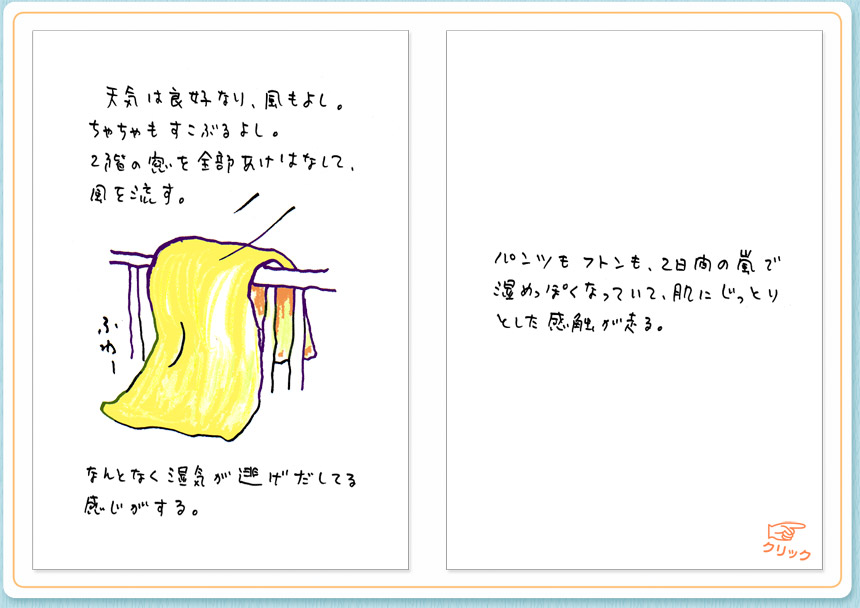 天気は良好なり、風もよし。
ちゃちゃもすこぶるよし。
2階の窓を全部あけはなして、
風を流す。
ふわー
なんとなく湿気が逃げだしてる
感じがする。
パンツもフトンも、2日間の嵐で
湿めっぽくなっていて、肌にじっとり
とした感触が走る。
クリック